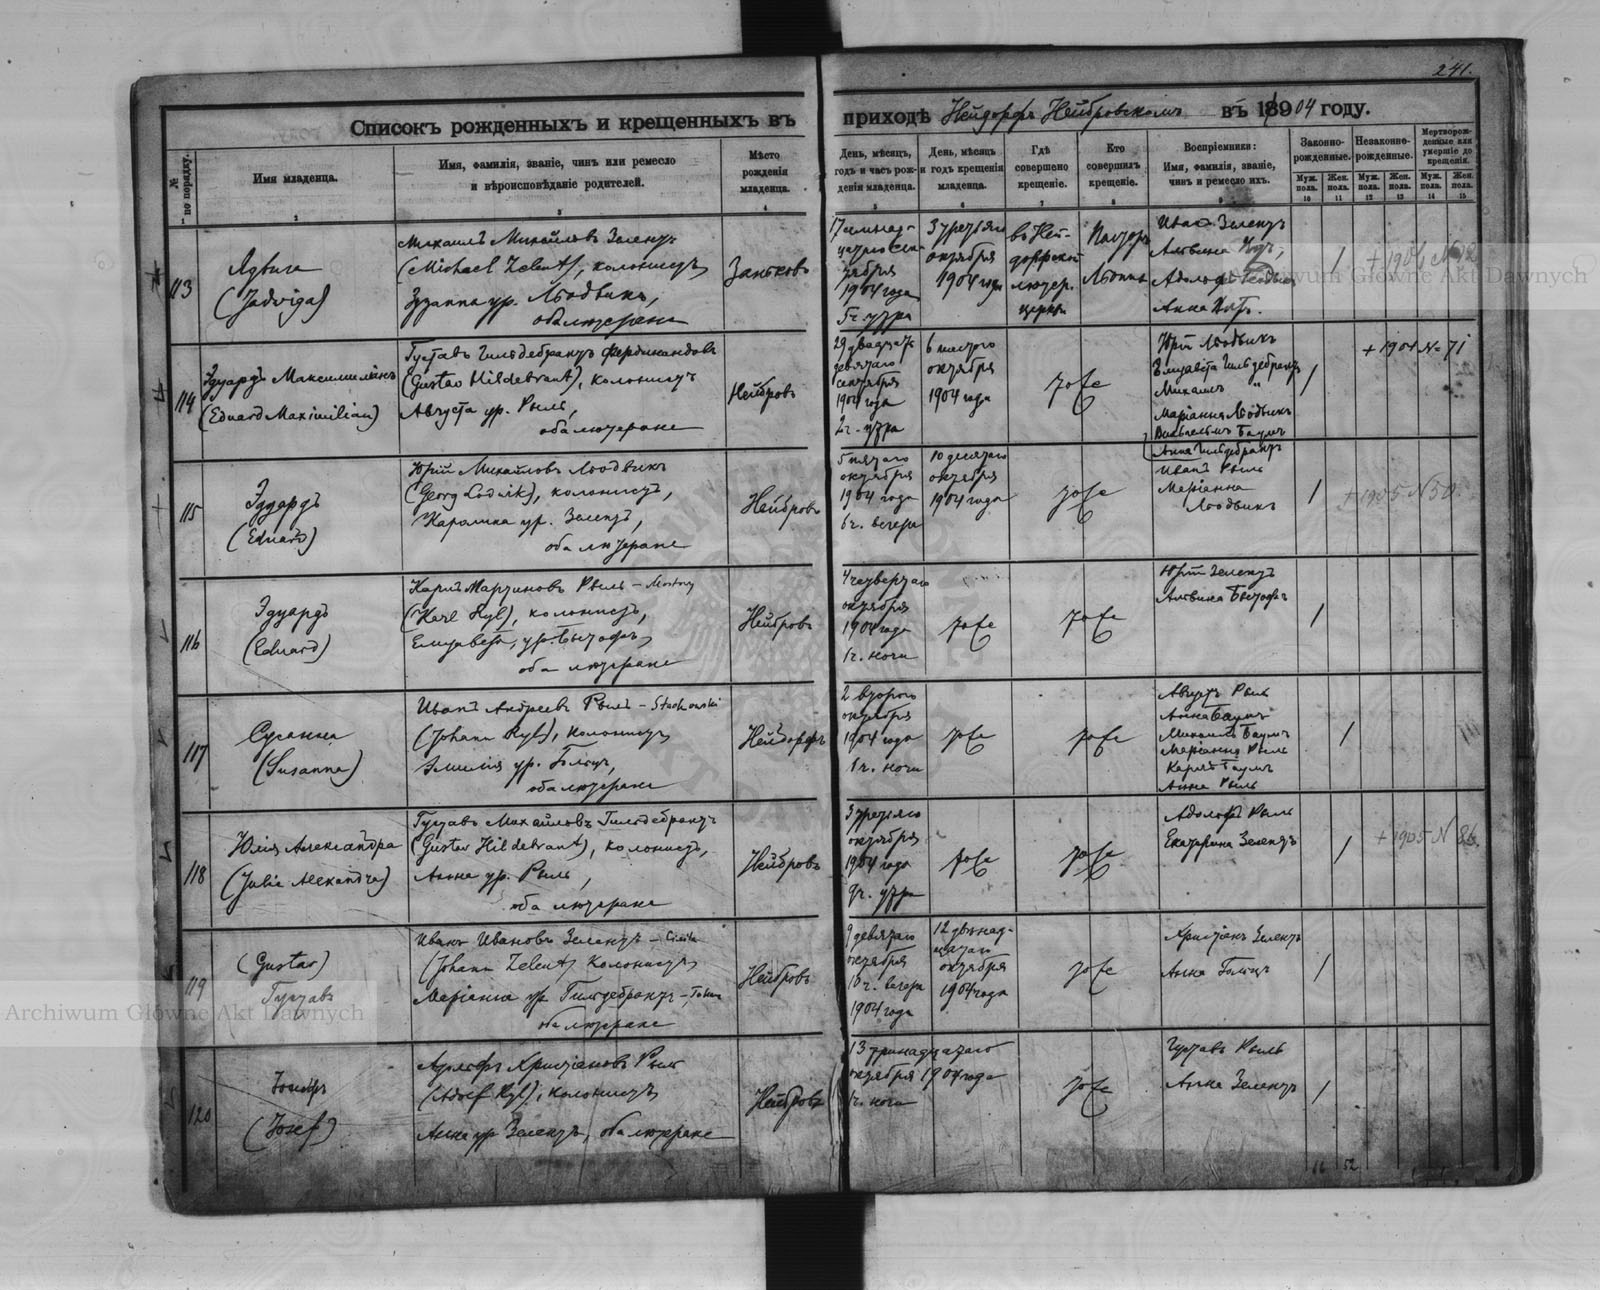 241.
Списокъ рожденныхъ и крещенныхъ въ
приходѣ Нейдорфъ Нейбровскомъ въ 1904 году.
№ по порядку.
Имя младенца.
Имя, фамилія, званіе, чинъ или ремесло
и вѣроисповѣданіе родителей.
Мѣсто
рожденія
младенца.
День, мѣсяцъ,
годъ и часъ рож-
денія младенца.
День, мѣсяцъ
и годъ крещенія
младенца.
Гдѣ
совершено
крещеніе.
Кто
совершилъ
крещеніе.
Воспріемники:
Имя, фамилія, званіе,
чинъ и ремесло ихъ.
Законно-
рожденные.
Незаконно-
рожденные.
Мертворож-
денные или
умершіе до
крещенія.
Муж. пола.
Жен. пола.
Муж. пола.
Жен. пола.
Муж. пола.
Жен. пола.
2 3 4 5 6 7 8 9 10 11 12 13 14 15
113
Ядвига
(Jadviga)
Михаилъ Михайловъ Зелентъ
(Michael Zelent), колонистъ
Зузанна ур. Людвикъ,
оба лютеране
Заньковъ
17 семнад-
цатаго сен-
тября
1904 года
5 ч. утра
3 третьяго
октября
1904 года
въ Ней-
дорфской
лютер.
церкви
Пасторъ
Иванъ Зелентъ
Альвина
Адольфъ
Анна
1
114
Эдуардъ Максимильянъ
(Eduard Maximilian)
Густавъ Гильдебрантъ Фердинандовъ
(Gustav Hildebrant), колонистъ
Августа ур. Рыль,
оба лютеране
Нейбровъ
29 двадцать
девятаго
сентября
1904 года
2 ч. утра
6 шестого
октября
1904 года
тоже
Юрій Людвикъ
Елизавета Гильдебрантъ
Михаилъ "
Маріанна Людвикъ
Вильгельмъ Баумъ
Анна Гильдебрантъ
1
+ 1904 № 71
115
Эдуардъ
(Eduard)
Юрій Михайловъ Людвикъ
(Georg Ludwik), колонистъ,
Каролина ур. Зелентъ,
оба лютеране
Нейбровъ
5 пятаго
октября
1904 года
6 ч. вечера
10 десятаго
октября
1904 года
тоже
Иванъ Рыль
Маріанна
Людвикъ
1
+ 1905 N 50
116
Эдуардъ
(Eduard)
Карлъ Мартиновъ Рыль -
(Karl Ryl), колонистъ,
Елизавета, ур. Бытофъ,
оба лютеране
Нейбровъ
4 четвертаго
октября
1904 года
1 ч. ночи
тоже
тоже
Юрій Зелентъ
Альвина Бытофъ
1
117
Сусанна
(Susanna)
Иванъ Андреевъ Рыль - Stachowski
(Johann Ryl), колонистъ
Эмилія ур. Гольцъ,
оба лютеране
Нейдорфъ
2 второго
октября
1904 года
1 ч. ночи
тоже
тоже
Августъ Рыль
Анна Баумъ
Михаилъ Баумъ
Маріанна Рыль
Карлъ Баумъ
Анна Рыль
1
118
Юлія Александра
(Julia Alexandra)
Густавъ Михайловъ Гильдебрантъ
(Gustav Hildebrant), колонистъ,
Анна ур. Рыль,
оба лютеране
Нейбровъ
3 третьяго
октября
1904 года
9 ч. утра
тоже
тоже
Адольфъ Рыль
Екатерина Зелентъ
1
+ 1905 N 86
119
(Gustav)
Густавъ
Иванъ Ивановъ Зелентъ -
(Johann Zelent) колонистъ
Маріанна ур Гильдебрантъ -
оба лютеране
Нейбровъ
9 девятаго
октября
10 ч. вечера
1904 года
12 двѣнад-
цатаго
октября
1904 года
тоже
Христіанъ Зелентъ
Анна Гольцъ
1
120
Іосифъ
(Josef)
Адольфъ Христіановъ Рыль
(Adolf Ryl), колонистъ
Анна ур Зелентъ, оба лютеране
Нейбровъ
13 тринадцатаго
октября 1904 года
1 ч. ночи
тоже
Густавъ Рыль
Анна Зелентъ
1
66 52
Archiwum Główne Akt Dawnych
Archiwum Główne Akt Dawnych